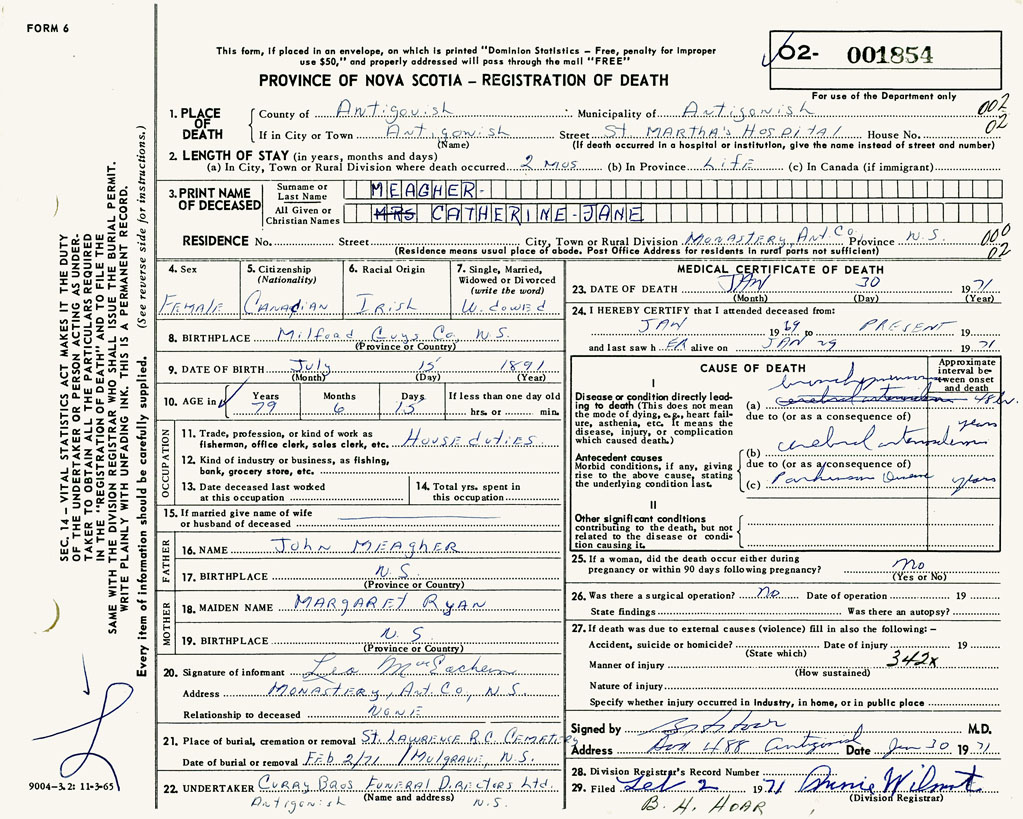 FORM 6
This form, if placed in an envelope, on which is printed "Dominion Statistics – Free, penalty for improper
use $50," and properly addressed will pass through the mail "FREE"
PROVINCE OF NOVA SCOTIA – REGISTRATION OF DEATH
02- 001854
For use of the Department only
1. PLACE OF DEATH
County of Antigonish Municipality of Antigonish 002
If in City or Town Antigonish Street St. MARTHA'S HOSPITAL House No. 02
(Name) (If death occurred in a hospital or institution, give the name instead of street and number)
2. LENGTH OF STAY (in years, months and days)
(a) In City, Town or Rural Division where death occurred 2 mos (b) In Province Life (c) In Canada (if immigrant)
3. PRINT NAME OF DECEASED
Surname or Last Name MEAGHER-
All Given or Christian Names MRS CATHERINE-JANE
RESIDENCE No. Street City, Town or Rural Division Monastery, Ant Co. Province N.S. 000
(Residence means usual place of abode. Post Office Address for residents in rural parts not sufficient) 02
4. Sex
Female
5. Citizenship (Nationality)
Canadian
6. Racial Origin
Irish
7. Single, Married, Widowed or Divorced (write the word)
Widowed
8. BIRTHPLACE Milford Guys Co, N.S.
(Province or Country)
9. DATE OF BIRTH July 15 1891
(Month) (Day) (Year)
10. AGE in Years 79 Months 6 Days 15 If less than one day old hrs. or min.
OCCUPATION
11. Trade, profession, or kind of work as fisherman, office clerk, sales clerk, etc. House duties
12. Kind of industry or business, as fishing, bank, grocery store, etc.
13. Date deceased last worked at this occupation
14. Total yrs. spent in this occupation
15. If married give name of wife or husband of deceased
FATHER
16. NAME JOHN MEAGHER
17. BIRTHPLACE N.S.
(Province or Country)
MOTHER
18. MAIDEN NAME MARGARET RYAN
19. BIRTHPLACE N.S.
(Province or Country)
20. Signature of informant Leo MacEachern
Address MONASTERY, Ant. Co, N.S.
Relationship to deceased NONE
21. Place of burial, cremation or removal St. LAWRENCE R.C. CEMETERY
Date of burial or removal FEB 2/71 / Mulgrave, N.S.
22. UNDERTAKER CURRY BROS FUNERAL DIRECTORS Ltd.
Antigonish (Name and address) N.S.
MEDICAL CERTIFICATE OF DEATH
23. DATE OF DEATH JAN 30 1971
(Month) (Day) (Year)
24. I HEREBY CERTIFY that I attended deceased from:
JAN 1969 to PRESENT 19
and last saw h ER alive on JAN 29 1971
CAUSE OF DEATH
Approximate interval between onset and death
I
Disease or condition directly leading to death (This does not mean the mode of dying, e.g., heart failure, asthenia, etc. It means the disease, injury, or complication which caused death.)
(a) bronchopneumonia 48 hr.
due to (or as a consequence of)
Antecedent causes
Morbid conditions, if any, giving rise to the above cause, stating the underlying condition last.
(b) cerebral arteriosclerosis years
due to (or as a consequence of)
(c) Parkinson Disease years
II
Other significant conditions contributing to the death, but not related to the disease or condition causing it.
25. If a woman, did the death occur either during pregnancy or within 90 days following pregnancy? no
(Yes or No)
26. Was there a surgical operation? no Date of operation 19
State findings Was there an autopsy?
27. If death was due to external causes (violence) fill in also the following: –
Accident, suicide or homicide? Date of injury 19
(State which) 342x
Manner of injury
(How sustained)
Nature of injury
Specify whether injury occurred in industry, in home, or in public place
Signed by M.D.
Address Box 488 Antigonish Date Jan 30 1971
28. Division Registrar's Record Number
29. Filed Feb 2 1971 Annie Wilmot
(Division Registrar)
B. H. HOAR
SEC. 14 – VITAL STATISTICS ACT MAKES IT THE DUTY
OF THE UNDERTAKER OR PERSON ACTING AS UNDER-
TAKER TO OBTAIN ALL THE PARTICULARS REQUIRED
IN THE "REGISTRATION OF DEATH" AND TO FILE THE
SAME WITH THE DIVISION REGISTRAR WHO SHALL ISSUE THE BURIAL PERMIT.
WRITE PLAINLY WITH UNFADING INK. THIS IS A PERMANENT RECORD.
Every item of information should be carefully supplied. (See reverse side for instructions.)
9004–3.2: 11-3-65